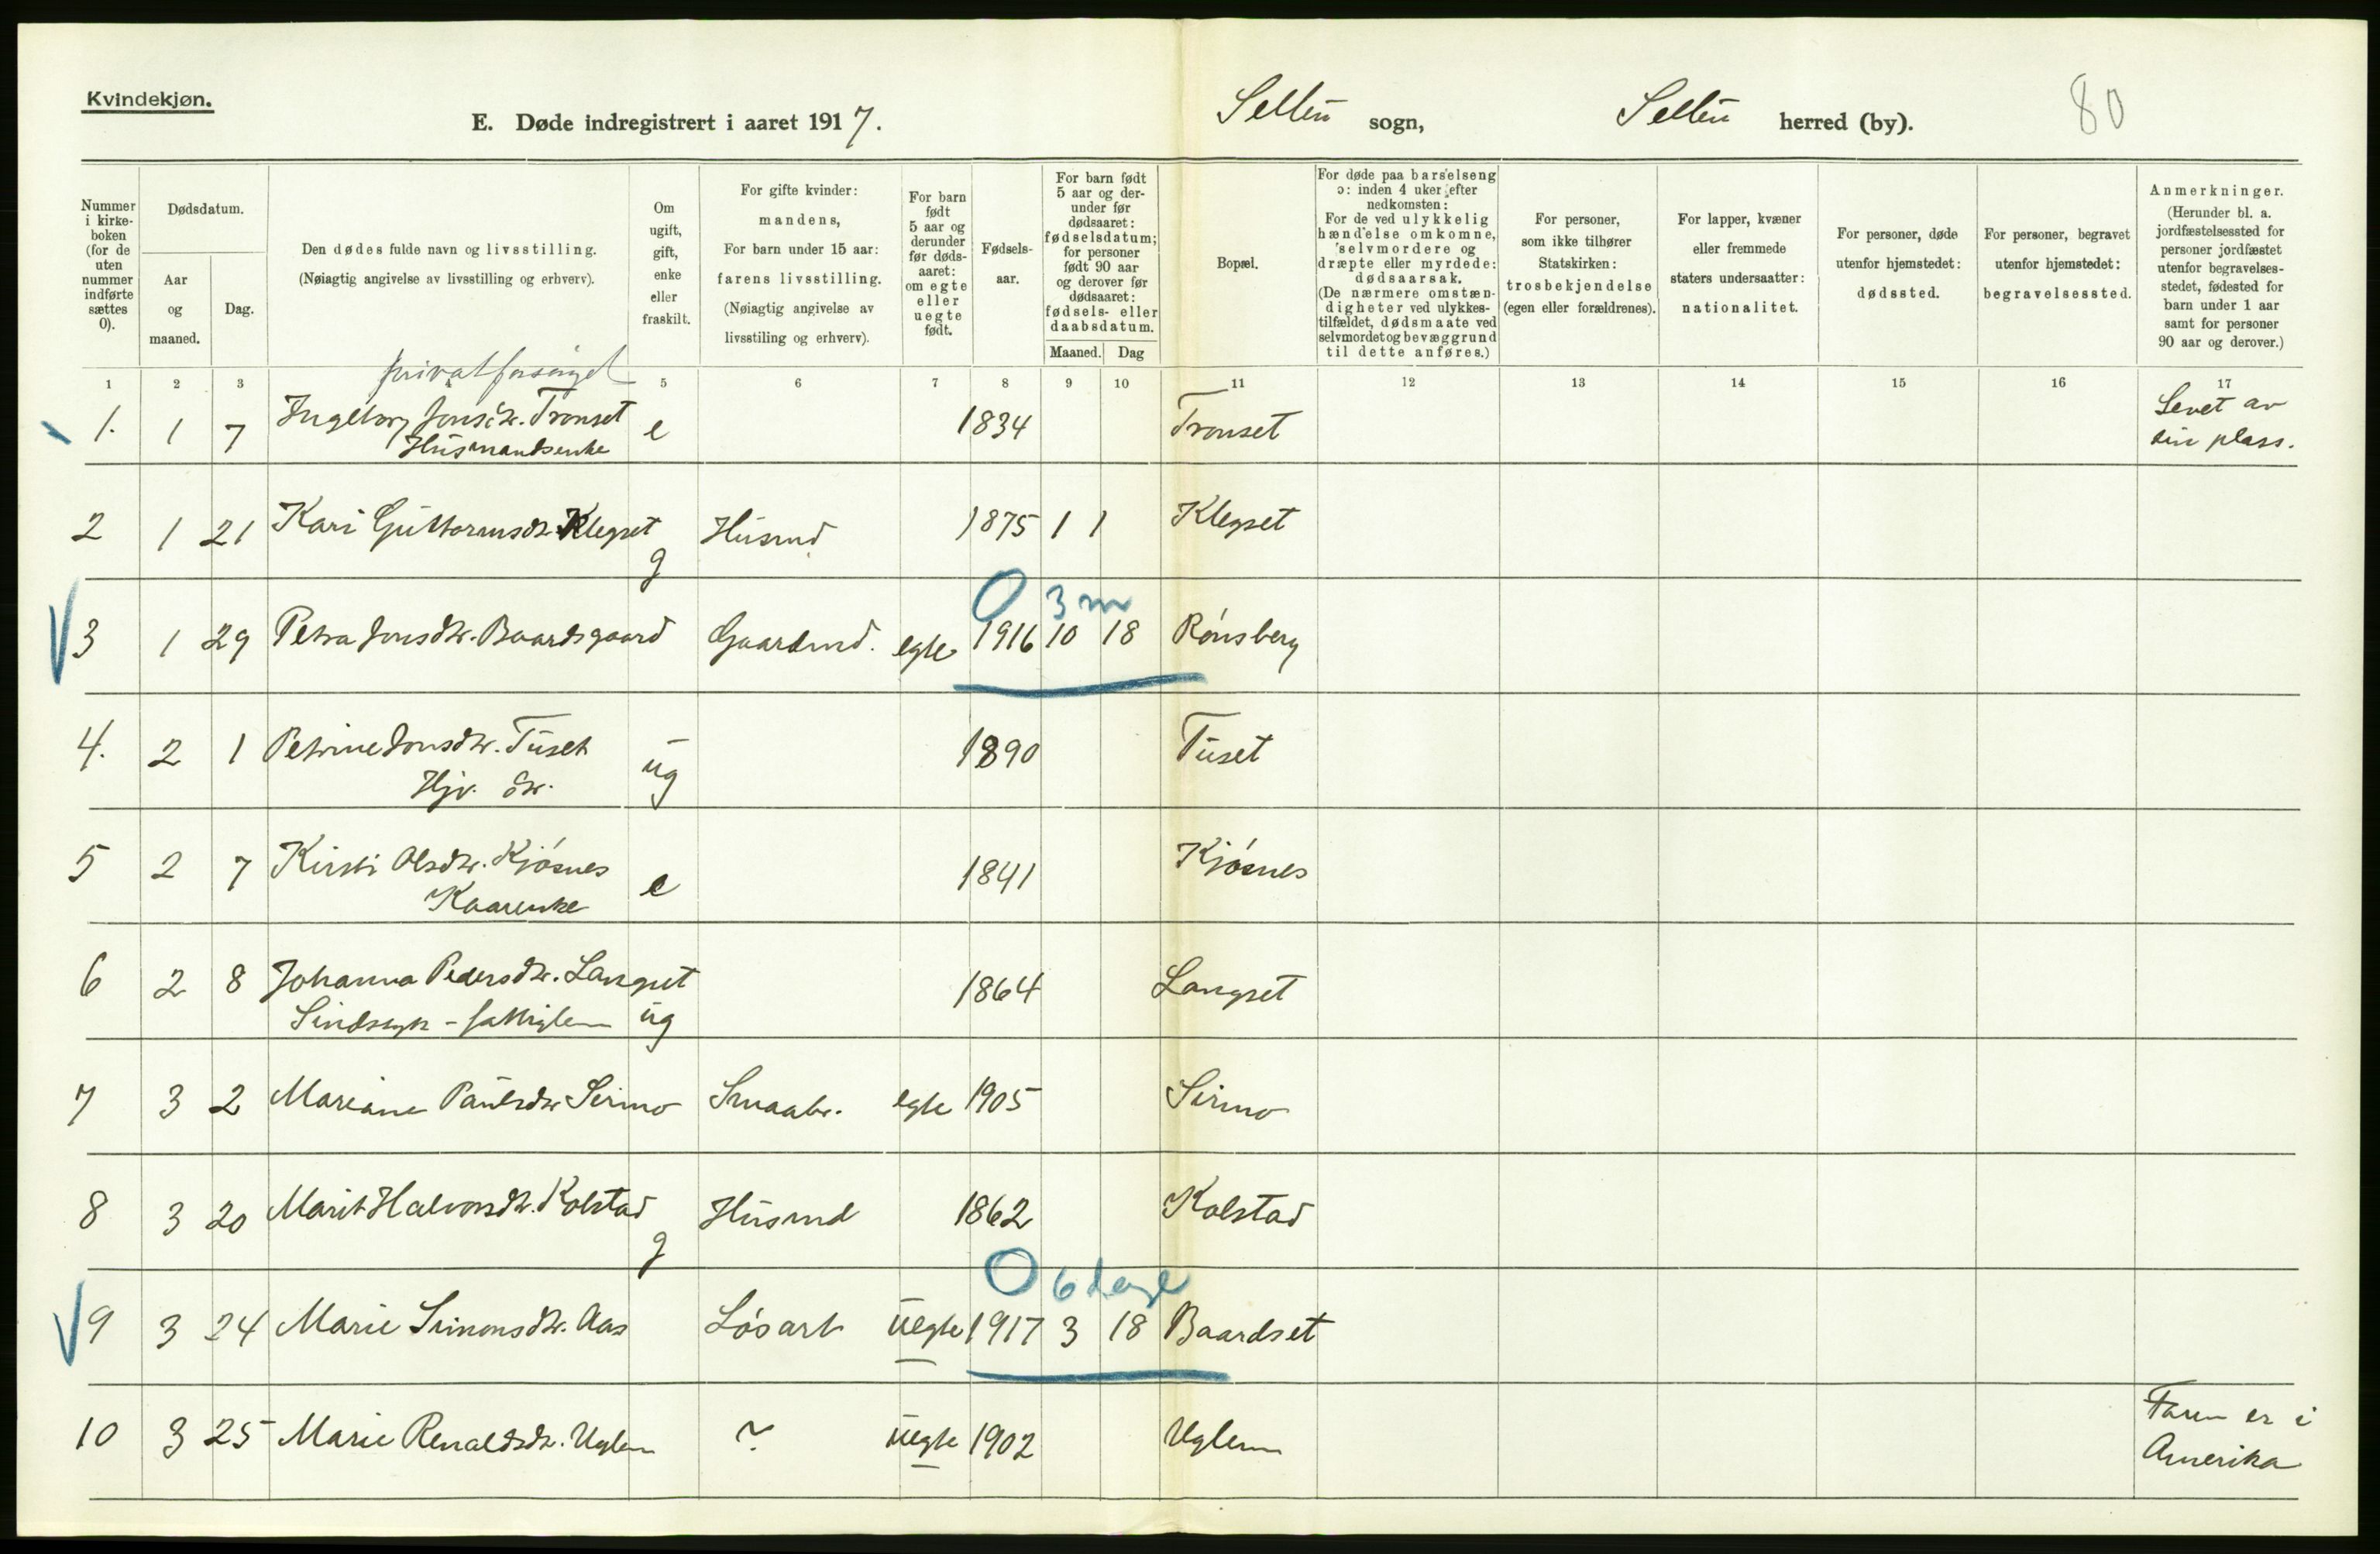 Kvindekjøn.
E. Døde indregistrert i aaret 1917. Selbu sogn, Selbu herred (by). 80
Nummer i kirke-boken (for de uten nummer indførte sættes 0).
Dødsdatum.
Aar og maaned.
Dag.
Den dødes fulde navn og livsstilling.
(Nøiagtig angivelse av livsstilling og erhverv).
Om ugift, gift, enke eller fraskilt.
For gifte kvinder: mandens,
For barn under 15 aar: farens livsstilling.
(Nøiagtig angivelse av livsstiling og erhverv).
For barn født 5 aar og derunder før døds-aaret: om egte eller uegte født.
Fødsels-aar.
For barn født 5 aar og der-under før dødsaaret: fødselsdatum; for personer født 90 aar og derover før dødsaaret: fødsels- eller daabsdatum.
Maaned. Dag
Bopæl.
For døde paa barselseng ɔ: inden 4 uker efter nedkomsten:
For de ved ulykkelig hændelse omkomne, selvmordere og dræpte eller myrdede: dødsaarsak.
(De nærmere omstæn-digheter ved ulykkes-tilfældet, dødsmaate ved selvmordet og bevæggrund til dette anføres.)
For personer, som ikke tilhører Statskirken: trosbekjendelse (egen eller forældrenes).
For lapper, kvæner eller fremmede staters undersaatter: nationalitet.
For personer, døde utenfor hjemstedet: dødssted.
For personer, begravet utenfor hjemstedet: begravelsessted.
Anmerkninger.
(Herunder bl. a. jordfæstelsessted for personer jordfæstet utenfor begravelses-stedet, fødested for barn under 1 aar samt for personer 90 aar og derover.)
1 2 3 4 5 6 7 8 9 10 11 12 13 14 15 16 17
privat forsørget
1. 1 7 Ingeborg Jonsdtr. Tronset e 1834 Tronset Levet av
Husmandsenke sin plass.
2 1 21 Kari Guttormsdtr. Klegset g Husmd 1875 1 1 Klegset
0 3 m
3 1 29 Petra Jonsdtr. Baardsgaard Gaardmd. egte 1916 10 18 Rönsberg
4. 2 1 Petrine Jonsdtr. Tuset ug 1890 Tuset
Hjv. dtr.
5 2 7 Kirsti Olsdtr. Kjósnes e 1841 Kjósnes
Kaarenke
6 2 8 Johanna Pedersdtr. Langset 1864 Langset
Sindssyk - fattiglem ug
7 3 2 Mariane Paulsdtr. Sirmo Smaabr. egte 1905 Sirmo
8 3 20 Marit Halvorsdtr. Kolstad g Husmd 1862 Kolstad
0 6 dage
9 3 24 Marie Simonsdtr. Aas Lósarb uegte 1917 3 18 Baardset
10 3 25 Marie Renaldsdtr. Uglem ? uegte 1902 Uglem Faren er i
Amerika